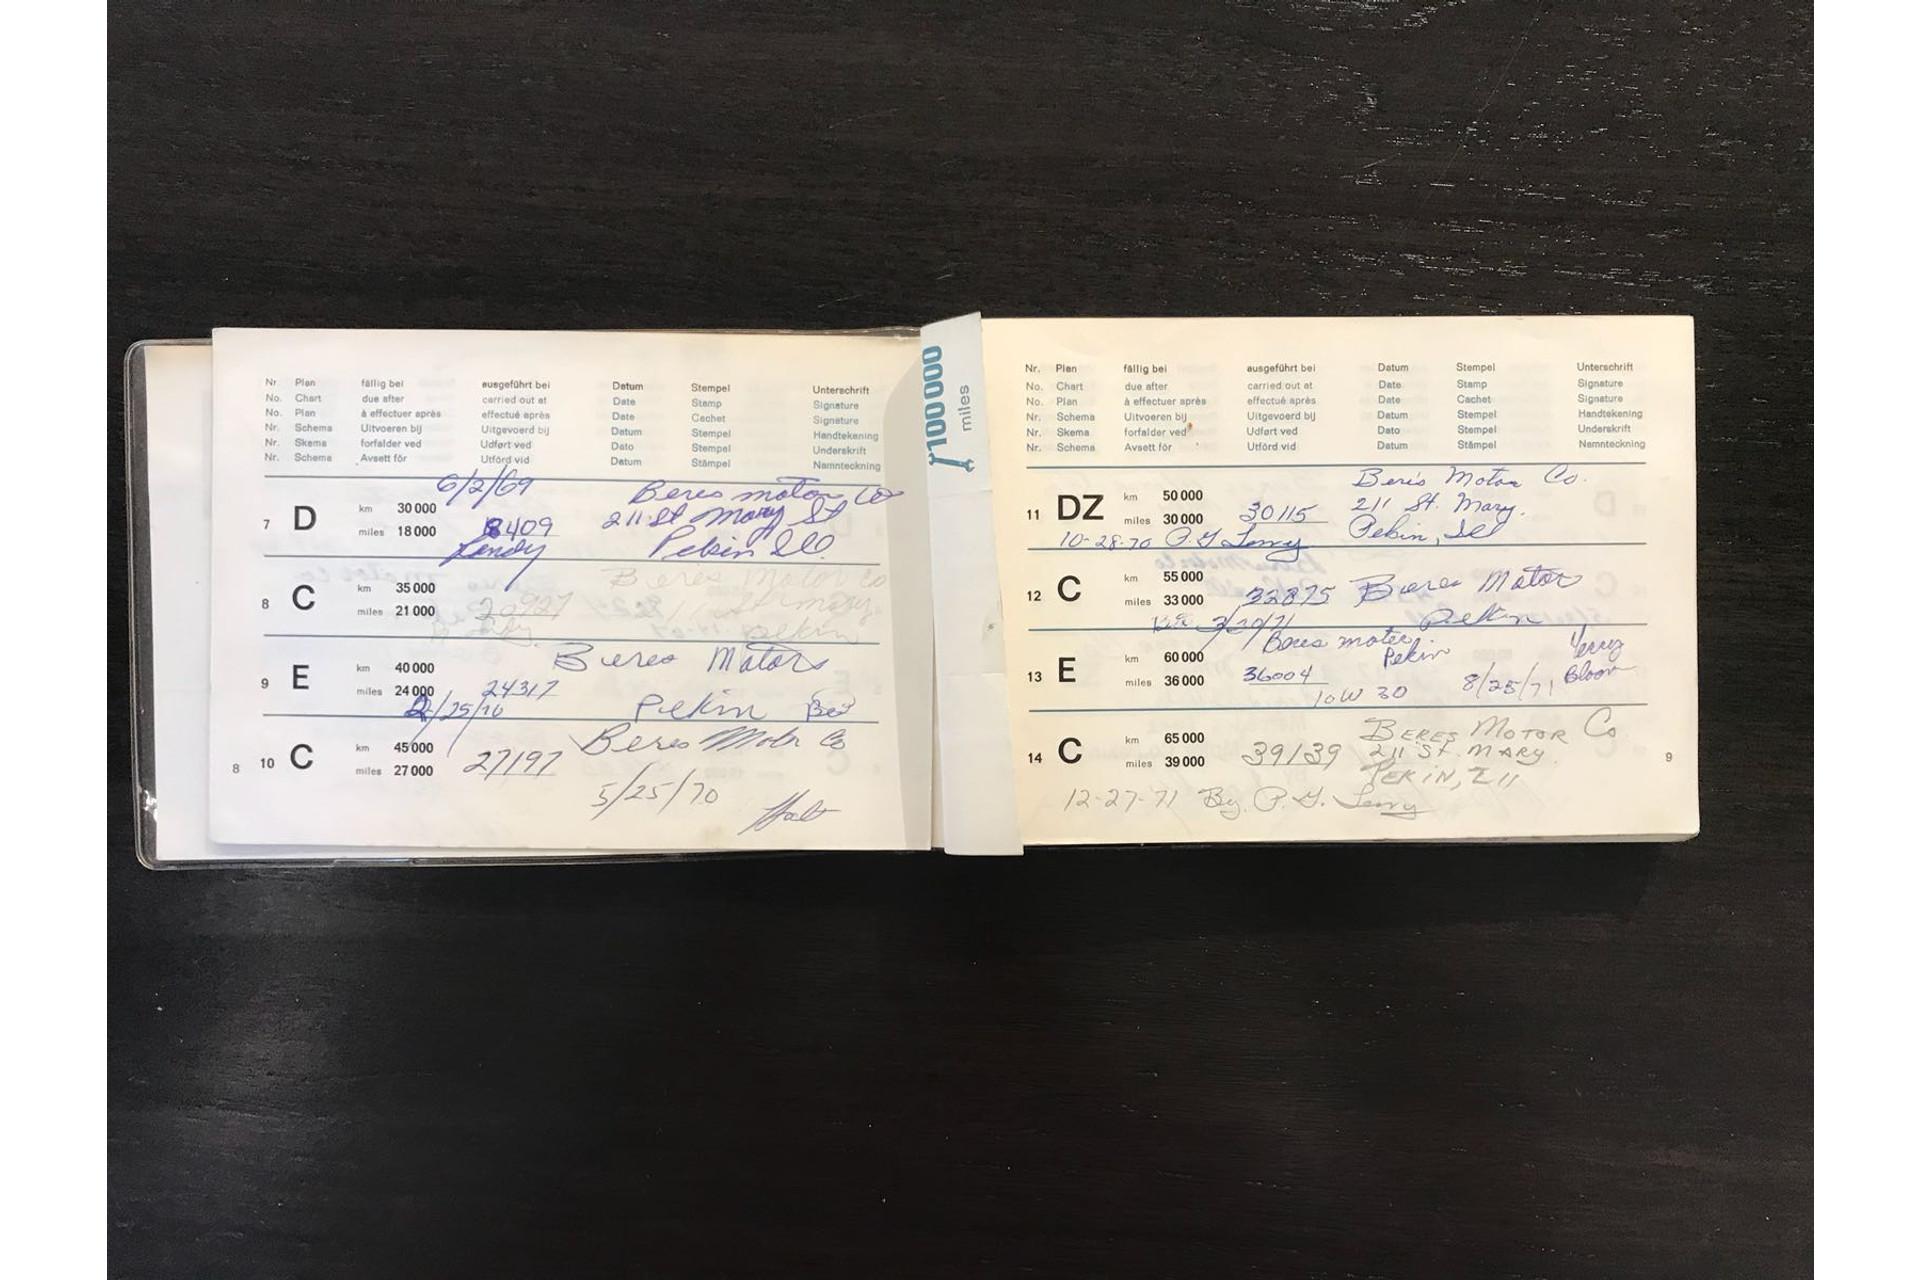 Nr. Plan fällig bei ausgeführt bei Datum Stempel Unterschrift
No. Chart due after carried out at Date Stamp Signature
No. Plan à effectuer après effectué après Date Cachet Signature
Nr. Schema Uitvoeren bij Uitgevoerd bij Datum Stempel Handtekening
Nr. Skema forfalder ved Udført ved Dato Stempel Underskrift
Nr. Schema Avsett för Utförd vid Datum Stämpel Namnteckning
6/2/69 Beres motor Co
7 D km 30 000 211 St Mary St
miles 18 000 8409
Pekin Ill
8 C km 35 000 Beres Motor Co
miles 21 000 20927 St mary
Pekin
9 E km 40 000 Beres Motors
miles 24 000 24317
2/25/70 Pekin
10 C km 45 000 Beres Motor Co
miles 27 000 27197
5/25/70
8
100 000
miles
Nr. Plan fällig bei ausgeführt bei Datum Stempel Unterschrift
No. Chart due after carried out at Date Stamp Signature
No. Plan à effectuer après effectué après Date Cachet Signature
Nr. Schema Uitvoeren bij Uitgevoerd bij Datum Stempel Handtekening
Nr. Skema forfalder ved Udført ved Dato Stempel Underskrift
Nr. Schema Avsett för Utförd vid Datum Stämpel Namnteckning
Beris Motor Co.
11 DZ km 50 000 211 St. Mary.
miles 30 000 30115
10-28-70 P.G. Pekin, Ill
12 C km 55 000 Beres Motor
miles 33 000 32875
3/20/71 Pekin
13 E km 60 000 Beres motor. Pekin
miles 36 000 36004 8/25/71
10W 30
14 C km 65 000 BERES MOTOR Co
miles 39 000 39139 211 ST. MARY.
PEKIN, Ill
12-27-71 By. P. G.
9